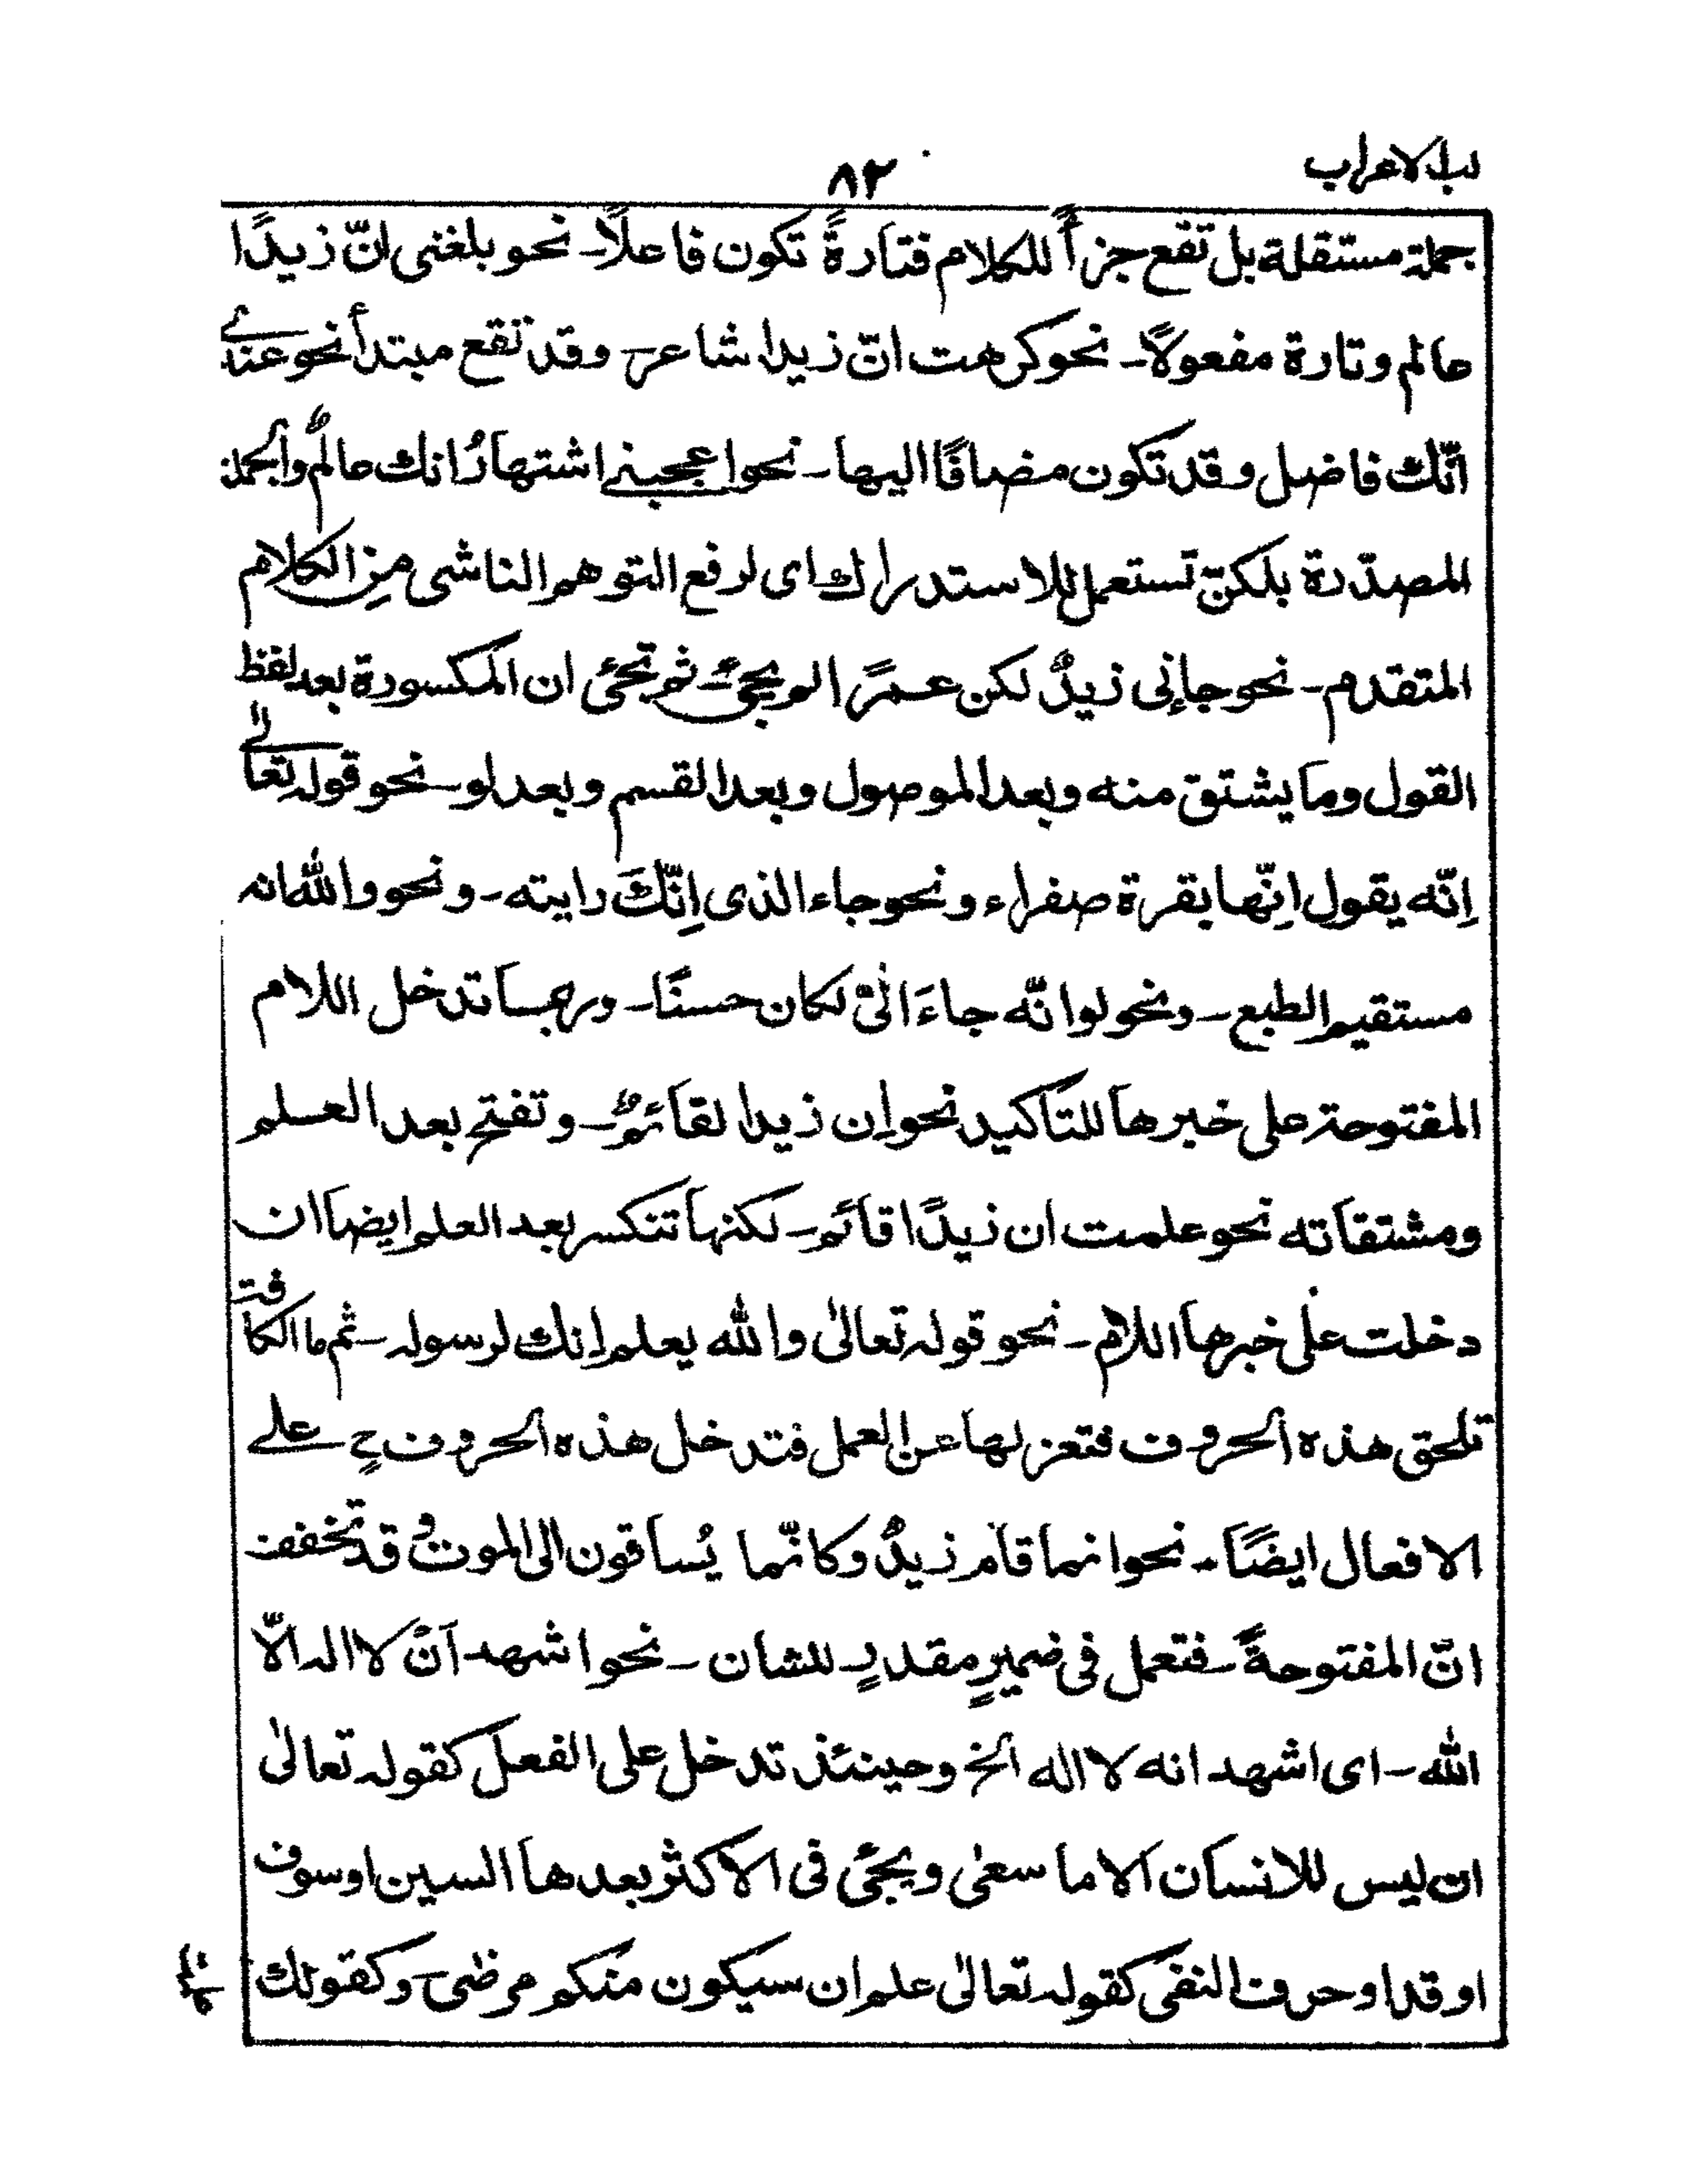 لب الاعراب
٨٢
جملة مستقلة بل تقع جزأً للكلام فتارةً تكون فاعلاً - نحو بلغنى انّ زيدًا
عالم وتارة مفعولاً - نحو كرهت انّ زيدا شاعر - وقد تقع مبتدأ نحو عندے
انّك فاضل وقد تكون مضافًا اليها - نحو اعجبنے اشتهارُ انك عالمٌ والجملة
المصدّرة بلكنّ تستعمل للاستدراك اى لرفع التوهم الناشى مِن الكلام
المتقدم - نحو جاءنى زيدٌ لكن عمرًا لم يجئ - ثم تجئ ان المكسورة بعد لفظ
القول وما يشتق منه وبعد الموصول وبعد القسم وبعد لو - نحو قوله تعالے
اِنّه يقول اِنّها بقرة صفراء ونحو جاء الذى اِنّكَ رايته - ونحو والله انه
مستقيم الطبع - ونحو لو انّه جاءَ الىّ لكان حسنًا - وربما تدخل اللام
المفتوحة على خبرها للتاكيد نحو اِن زيدا لقائمٌ - وتفتح بعد العلم
ومشتقاته نحو علمت ان زيدًا قائم - لكنها تنكسر بعد العلم ايضا ان
دخلت على خبرها اللام - نحو قوله تعالىٰ والله يعلم اِنك لرسوله - ثم ما الكافة
تلحق هذه الحروف فتعزلها عن العمل فتدخل هذه الحروف ح علے
الافعال ايضًا - نحو انما قام زيدٌ وكانّما يُساقون الى الموت و قد تخفف
انّ المفتوحةُ - فتعمل فى ضميرٍ مقدرٍ للشان - نحو اشهد اَنْ لا اله الاّ
الله - اى اشهد انه لا اله الخ وحينئذ تدخل على الفعل كقوله تعالىٰ
ان ليس للانسان الا ما سعىٰ ويجئ فى الاكثر بعدها السين او سوف
او قد او حرف النفى كقوله تعالىٰ علم ان سيكون منكم مرضٰى - وكقولك